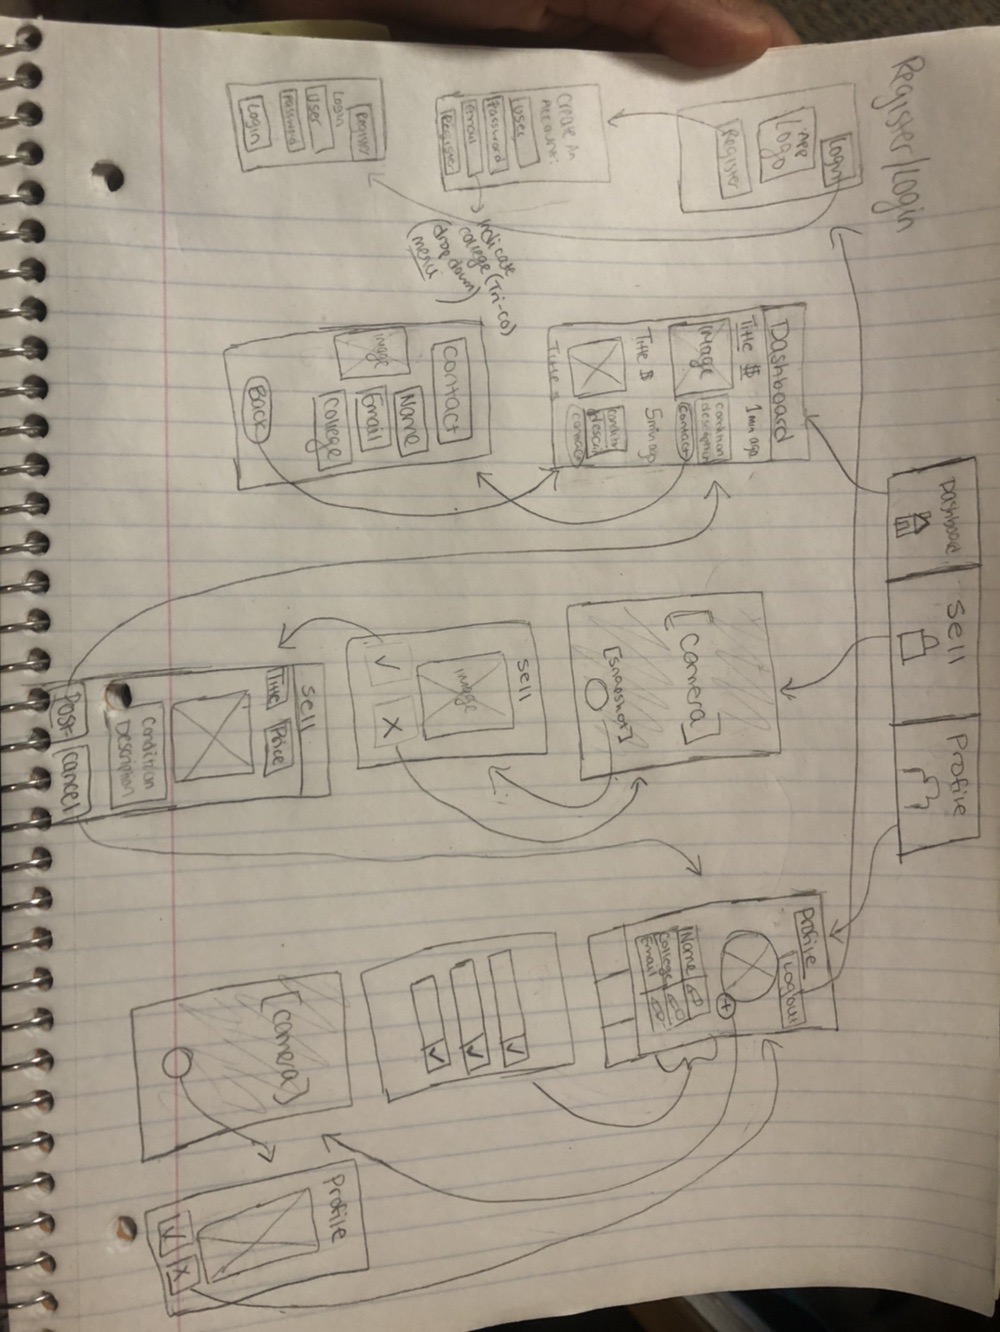 Register/Login
Login
App
Logo
Register
Create An
Account:
User
Password
Email
Register
indicate
college (Tri-co)
(drop down
menu)
Register
Login
User
Password
Login
Dashboard
Sell
Profile
Dashboard
Title $ 1 min ago
Image
condition
description
Contact
Title $ 5 min ago
Contact
Title $
Contact
Image
Name
Email
College
Back
[Camera]
[snapshot]
Sell
Image
✓ X
Sell
Title Price
Condition
Description
Post Cancel
Profile Logout
+
Name
College
Email
✓
✓
✓
[Camera]
Profile
✓ X